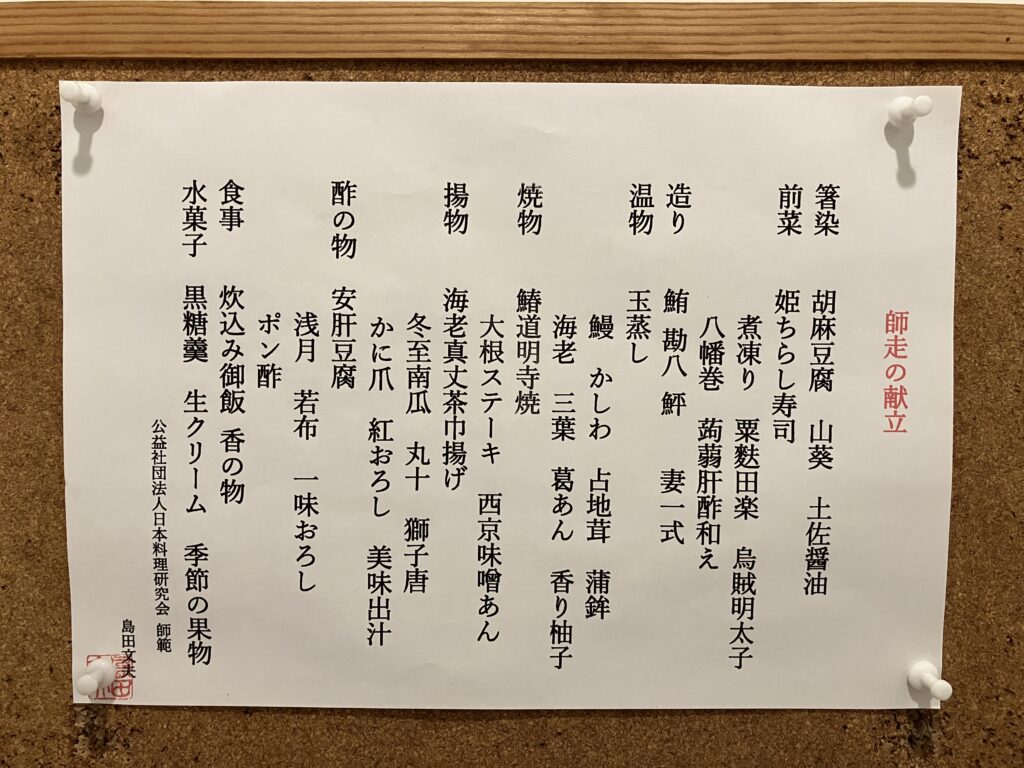 師走の献立
箸染　胡麻豆腐　山葵　土佐醤油
前菜　姫ちらし寿司
煮凍り　粟麩田楽　烏賊明太子
八幡巻　蒟蒻肝酢和え
造り　鮪　勘八　鮃　妻一式
温物　玉蒸し
鰻　かしわ　占地茸　蒲鉾
海老　三葉　葛あん　香り柚子
焼物　鰆道明寺焼
大根ステーキ　西京味噌あん
揚物　海老真丈茶巾揚げ
冬至南瓜　丸十　獅子唐
かに爪　紅おろし　美味出汁
酢の物　安肝豆腐
浅月　若布　一味おろし
ポン酢
食事　炊込み御飯　香の物
水菓子　黒糖羹　生クリーム　季節の果物
公益社団法人日本料理研究会　師範
島田文夫